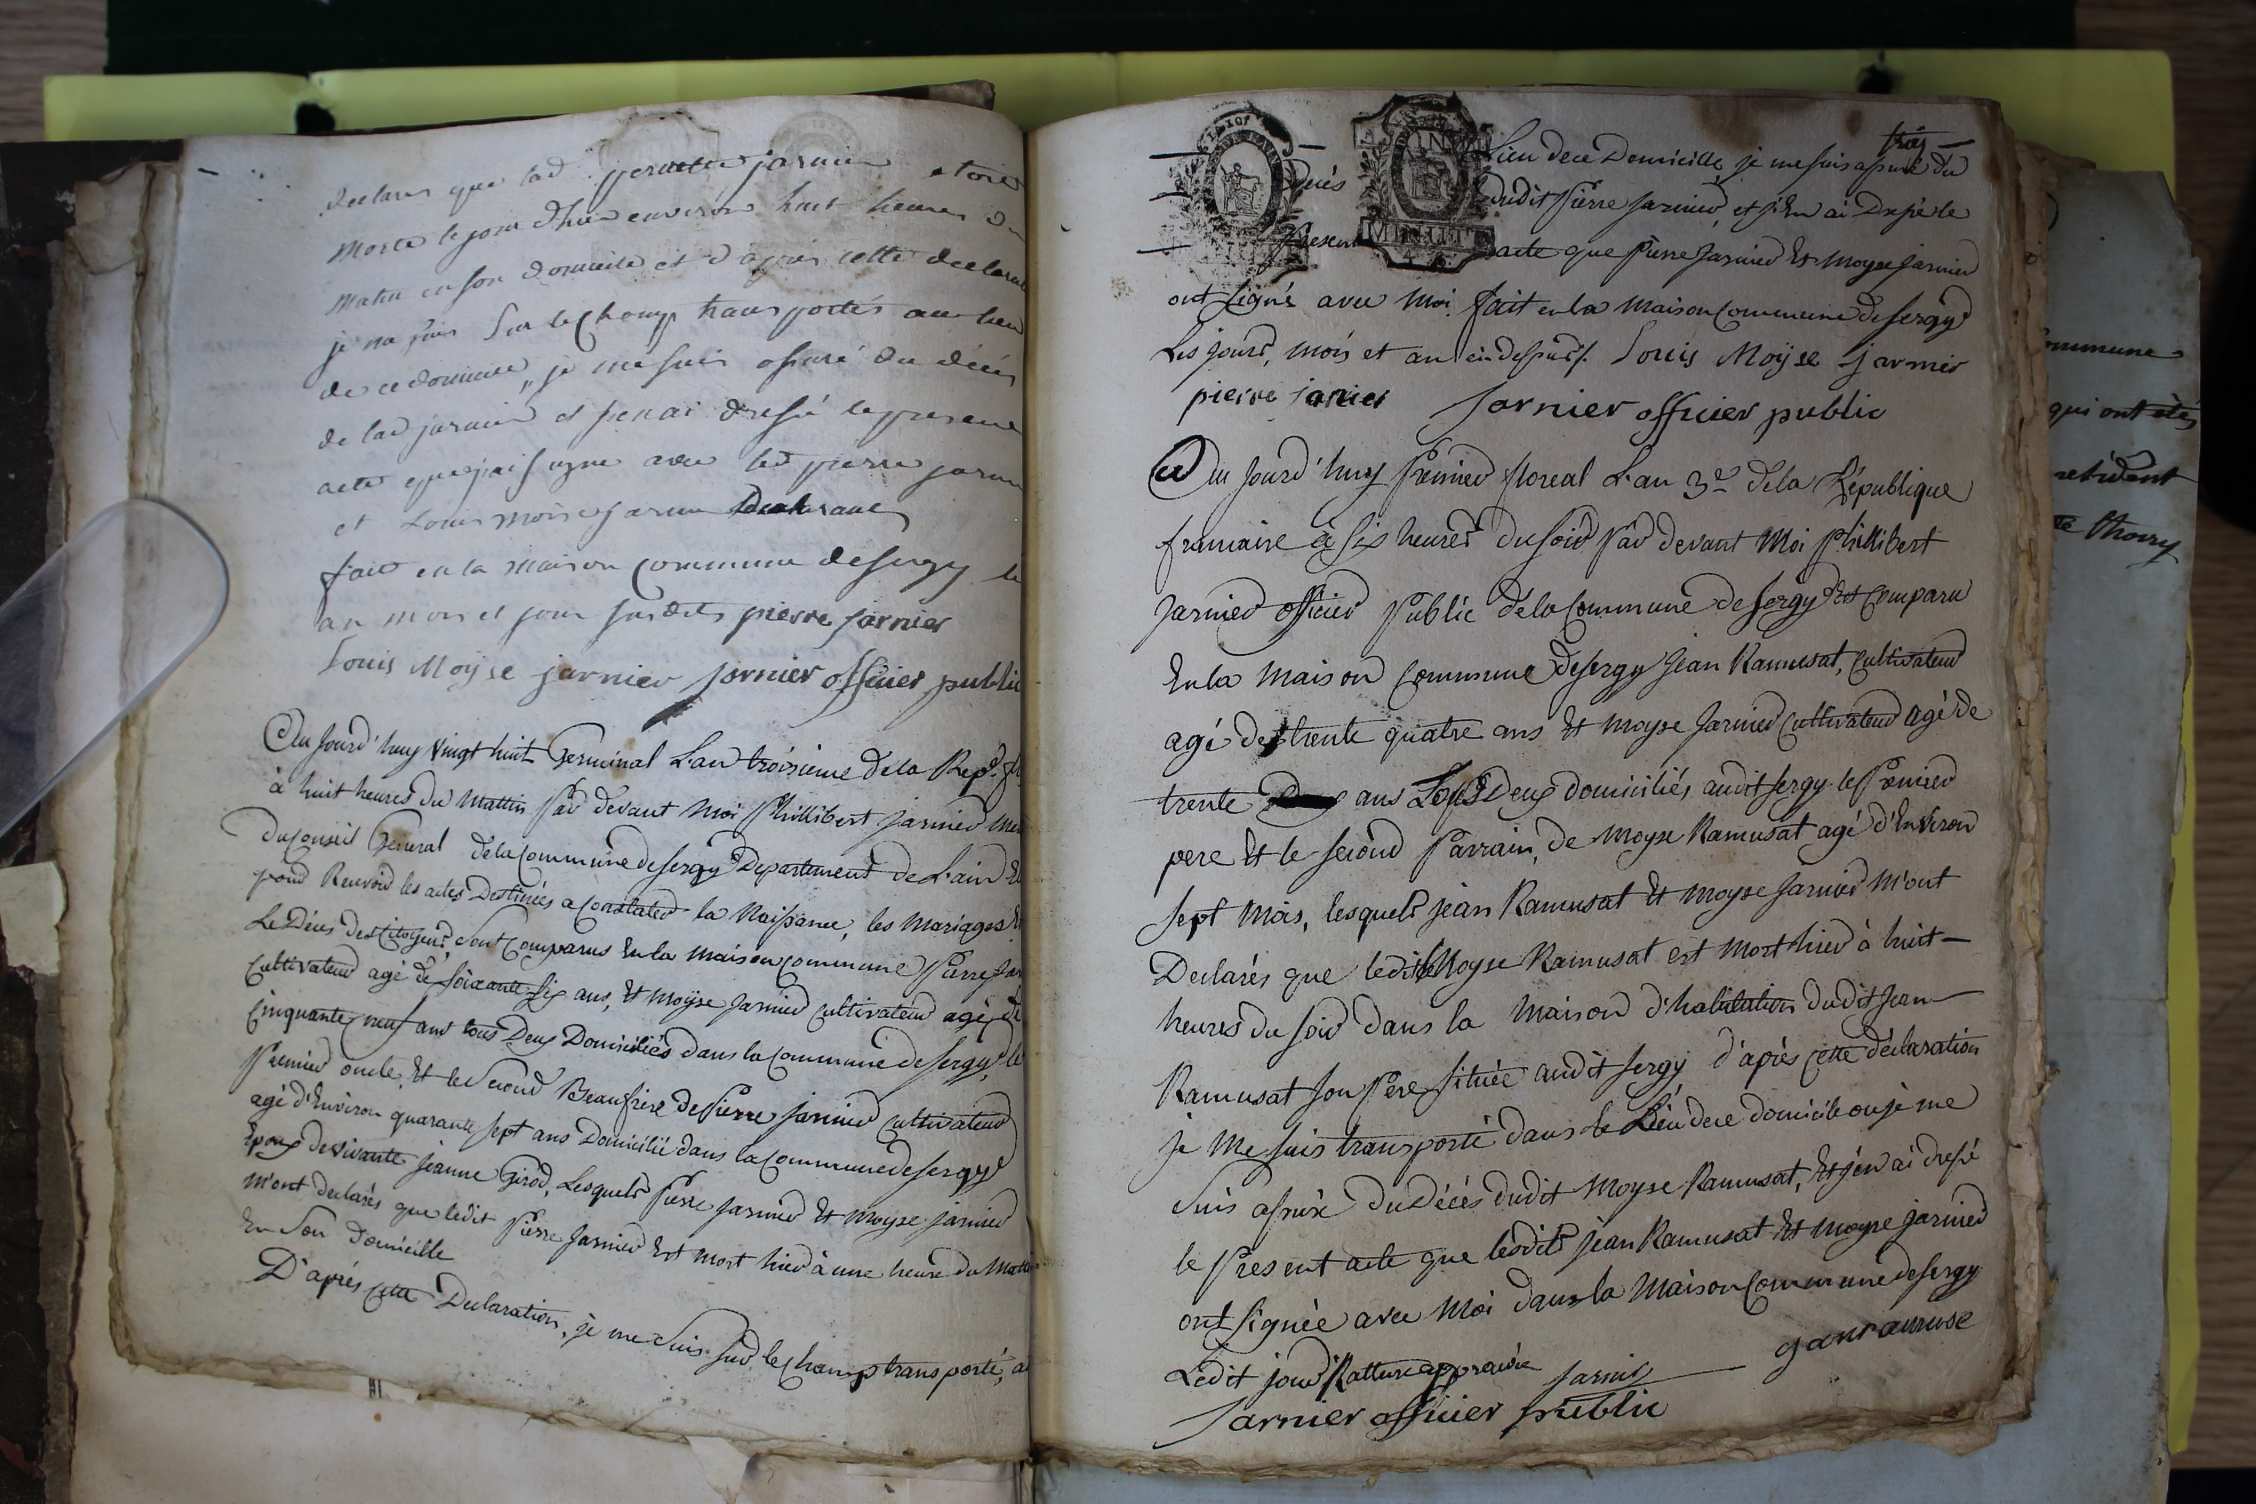 declaré que lad pernette jarnier etoit
morte le jour d'hier environ huit heures du
matin en son domicile et d'après cette declarat
je me suis sur le champ transportés au lieu
de ce domicile, je me suis assuré du décés
de lad jarnier et j'en ai dressé le present
acte que j'ai signé avec led pierre jarnier
et Louis moise jarnier
fait en la maison commune de sergy le
an mois et jour susdits pierre jarnier
Louis Moÿse jarnier jarnier officier public
Au jourd'huy vingt huit Germinal L'an troisieme de la Rep.
à huit heures du Mattin par devant moi Phillibert jarnier
du Conseil General de la Commune de sergy Departement de L'ain
pour Recevoir les actes Destinées a Constater la Naissance, les Mariages
Le Déces des Citoyens, sont Comparus En la maison commune Pierre
Cultivateur agé de soixante six ans, Et moÿse jarnier cultivateur agé de
Cinquante neuf ans tous Deux Domiciliés dans la commune de sergy, le
Premier oncle, Et le second Beaufrere de Pierre jarnier Cultivateur
agé d'Environ quarante sept ans Domicilié dans la commune de sergy
Epoux de vivante jeanne Girod, Lesquels Pierre jarnier Et moyse jarnier
m'ont declarés que ledit Pierre jarnier Est mort hier à une heure du Mattin
En son domicille
D'aprés cette Declaration, je me suis sur le champ transporté, au
trois
Lieu de ce Domicille je me suis assuré du
Decés dudit Pierre jarnier, et j'En ai Dressé le
Present acte que Pierre jarnier Et moyse jarnier
ont signé avec moi. fait en la maison commune de sergy
Les jours, mois et an ci dessus. Louis Moÿse jarnier
pierre jarnier jarnier officier public
Au jourd'huy Premier floreal L'an 3e de la République
francaise à six heures du soir Par devant Moi Phillibert
jarnier officier Public de la commune de sergy Est comparu
En la maison commune de sergy jean Ramusat, cultivateur
agé de trente quatre ans Et moyse jarnier cultivateur agé de
trente ans Tous Deux domiciliés audit sergy le Premier
pere Et le second Parrain, de moyse Ramusat agé d'Environ
sept mois, lesquels jean Ramusat Et moyse jarnier m'ont
Declarés que ledit Moyse Ramusat est mort hier à huit
heures du soir dans la maison d'habitation dudit jean
Ramusat son Pere située audit sergy d'aprés cette déclaration
je me suis transporté dans le Lieu de ce domicile ou je me
suis assuré du Décés dudit moyse Ramusat, Et j'en ai dressé
le Present acte que lesdits jean Ramusat Et moyse jarnier
ont signée avec moi dans la maison commune de sergy
Ledit jour Rature approuvée jarnier jan ramuse
jarnier officier public
MINUTE
ommune
qui ont étés
résident
Thoiry